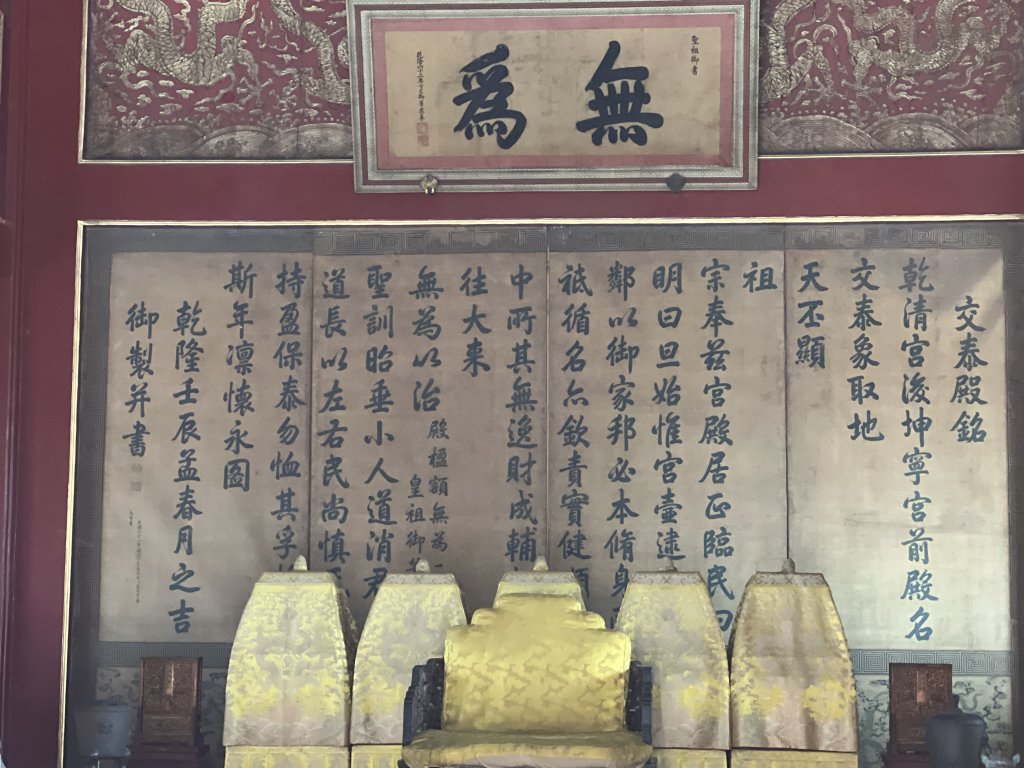 聖祖御書
無爲
交泰殿銘
乾清宮後坤寧宮前殿名
交泰象取地
天丕顯
祖
宗奉茲宮殿居正臨民曰
明曰旦始惟宮壼逮
鄰以御家邦必本脩身
祗循名亦欽責實健順
中所其無逸財成輔
往大来
無為以治 殿楹額無為
皇祖御
聖訓昭垂小人道消君
道長以左右民尚慎
持盈保泰勿恤其孚
斯年凛懷永圖
乾隆壬辰孟春月之吉
御製并書